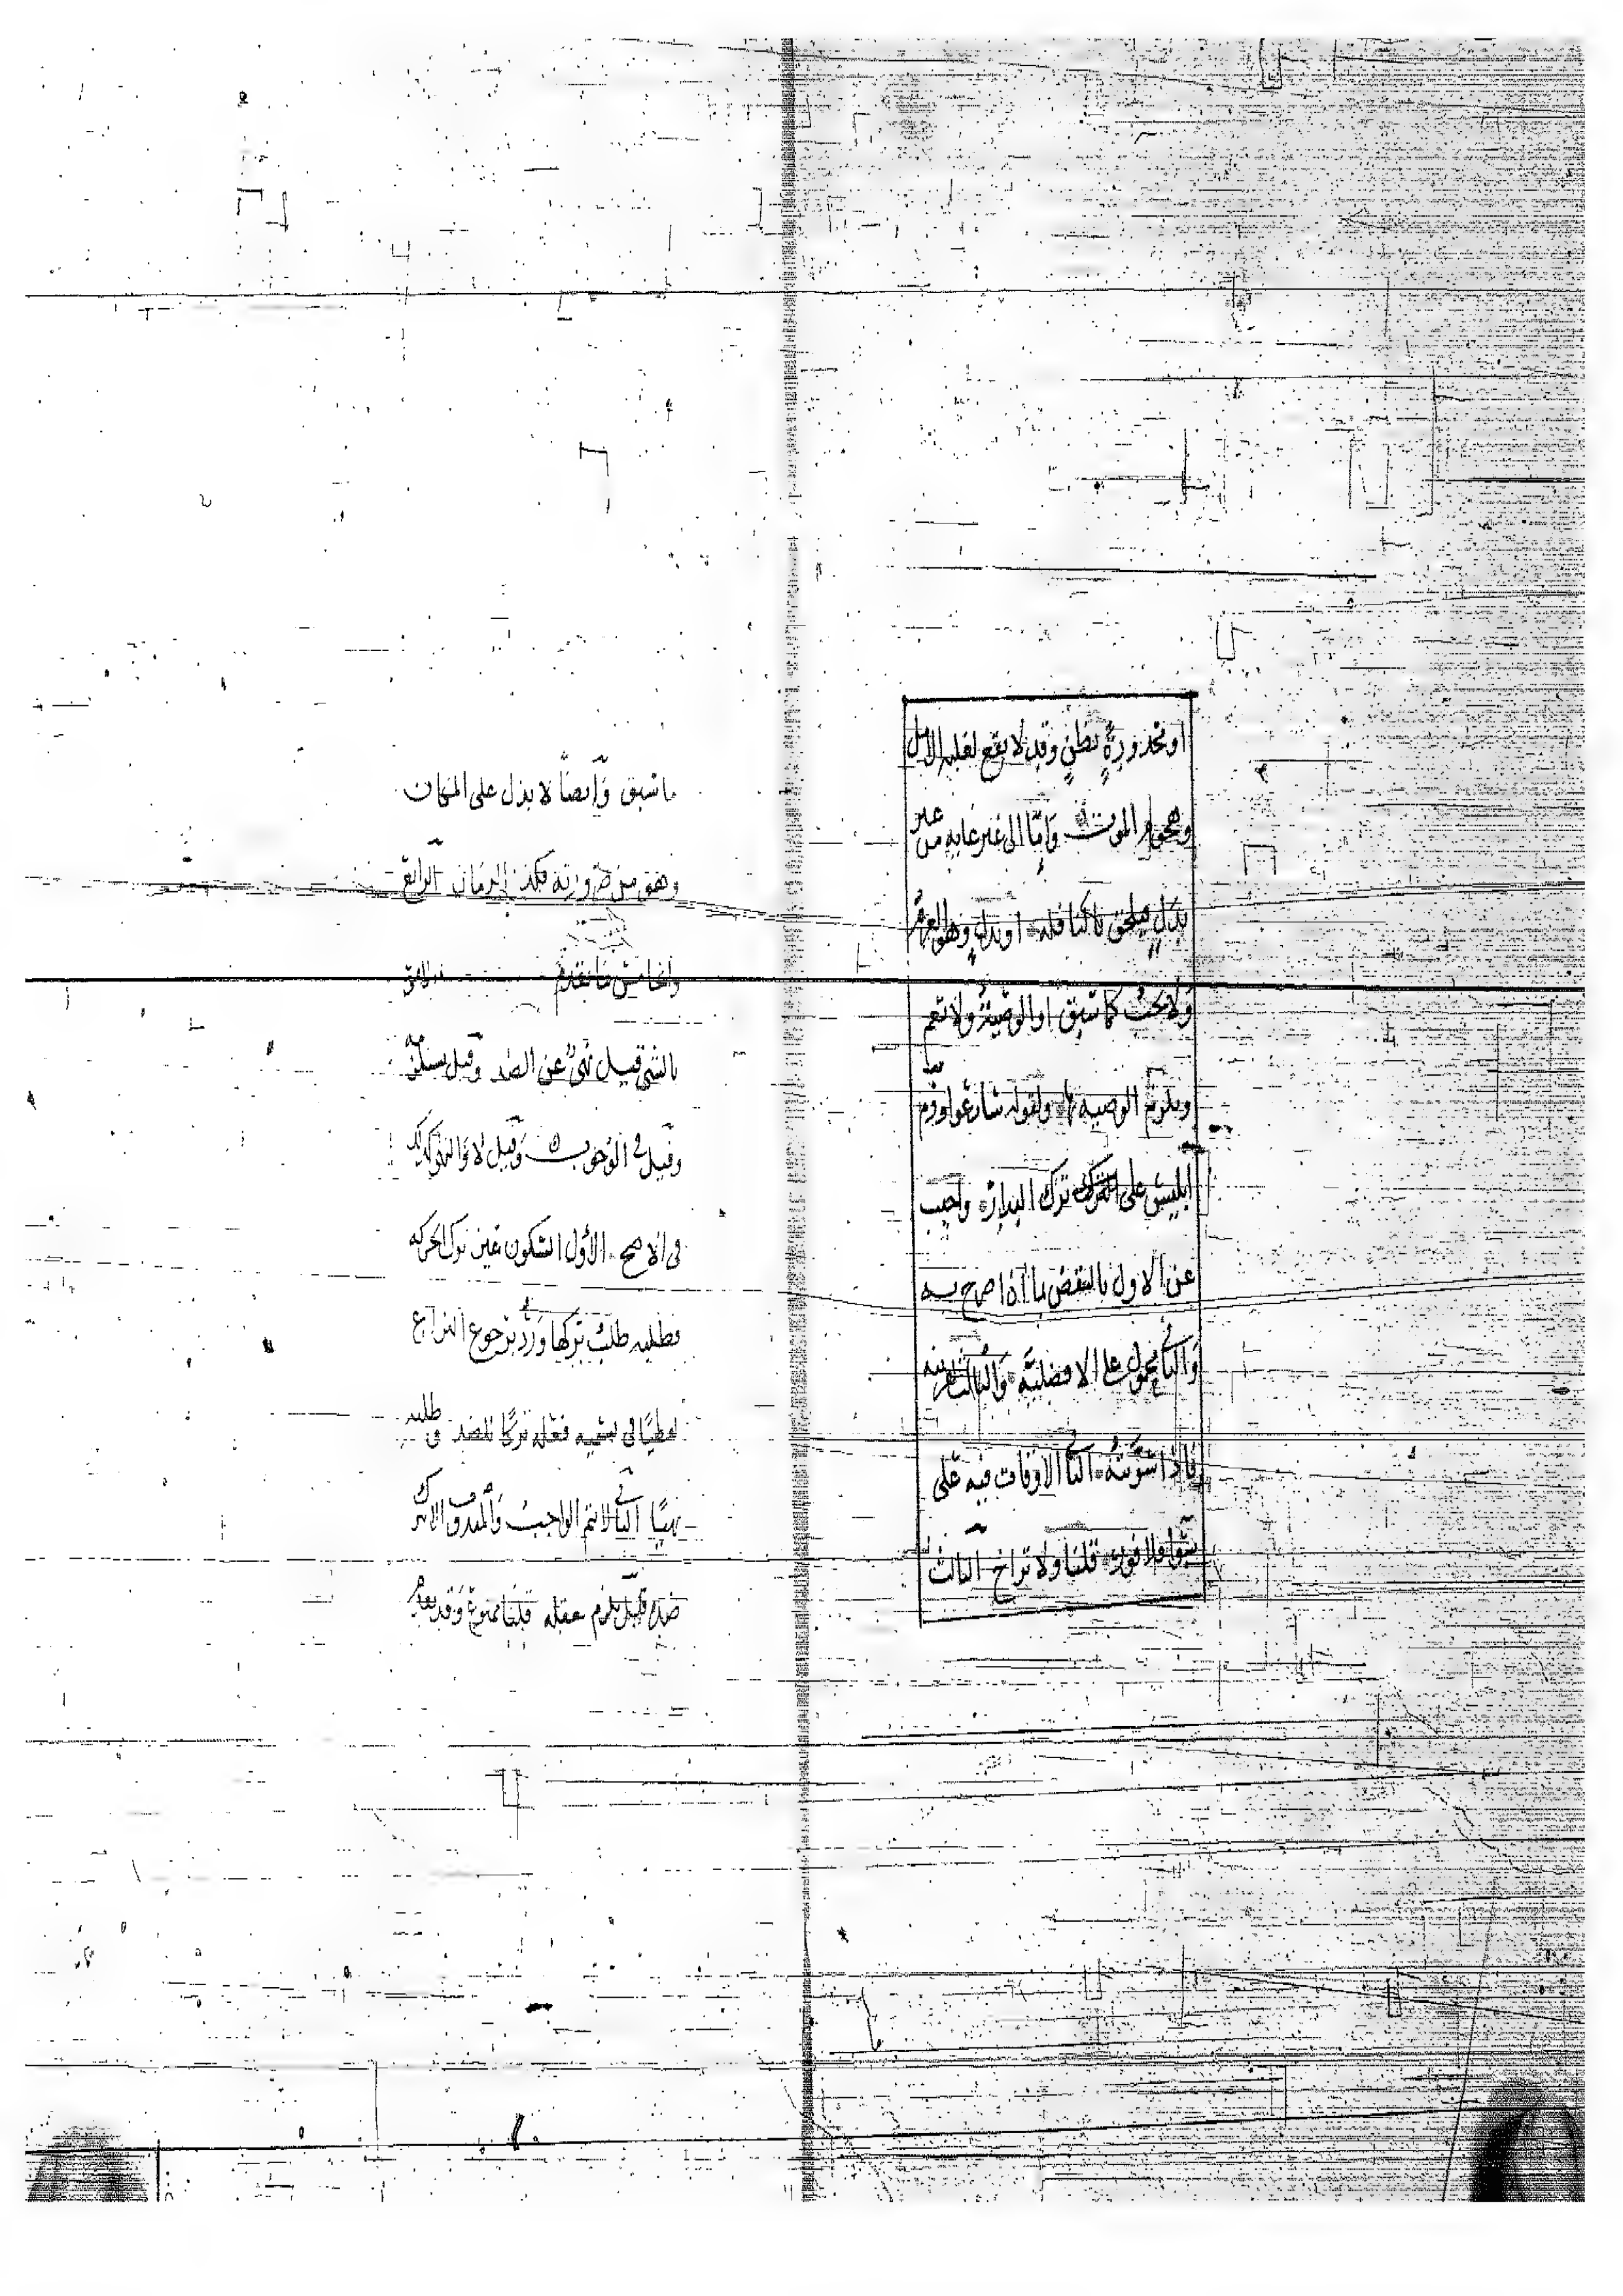 او محدودة بظنٍ وقد لا يقع لغلبه الامل
وهجوم الموت وَإمّا الى غير غايه من غير
بدلٍ فيلحق بالنافله او بدلٍ وهو العزم
ولا يجب كما سبق او الوصيّة ولا تعم
ويلزم الوصيه بها ولقوله سارعوا وذم
ابليس على ترك البدار واجيب
عن الاول بالنقض بما اذا صرح به
والثاني محمول على الافضليّة والثالث لقرينه
فاذا سوّيته الثاني الاوقات فيه على
سوا ولا فور قلنا ولا تراخ الثالث
ما سبق وَأيضاً لا يدل على المكان
وهو من ضرورته فكذا الزمان الرابع
والخامس ما تقدم الامر
بالشي قيل نهىٌ عن الضد وقيل يستلزمه
وقيل في الوجوب وقيل لا والنهي كذلك
في الاصح الأول السكون عين ترك الحركه
فطلبه طلبُ تركها وَرُدَّ برجوع النزاع
لفظيًا في تسميه فعله تركًا للضد وطلبه
نهيًا الثاني لا يتم الواجبُ الا بترك
ضده قيل يلزم عقله قلنا ممنوع وَقد